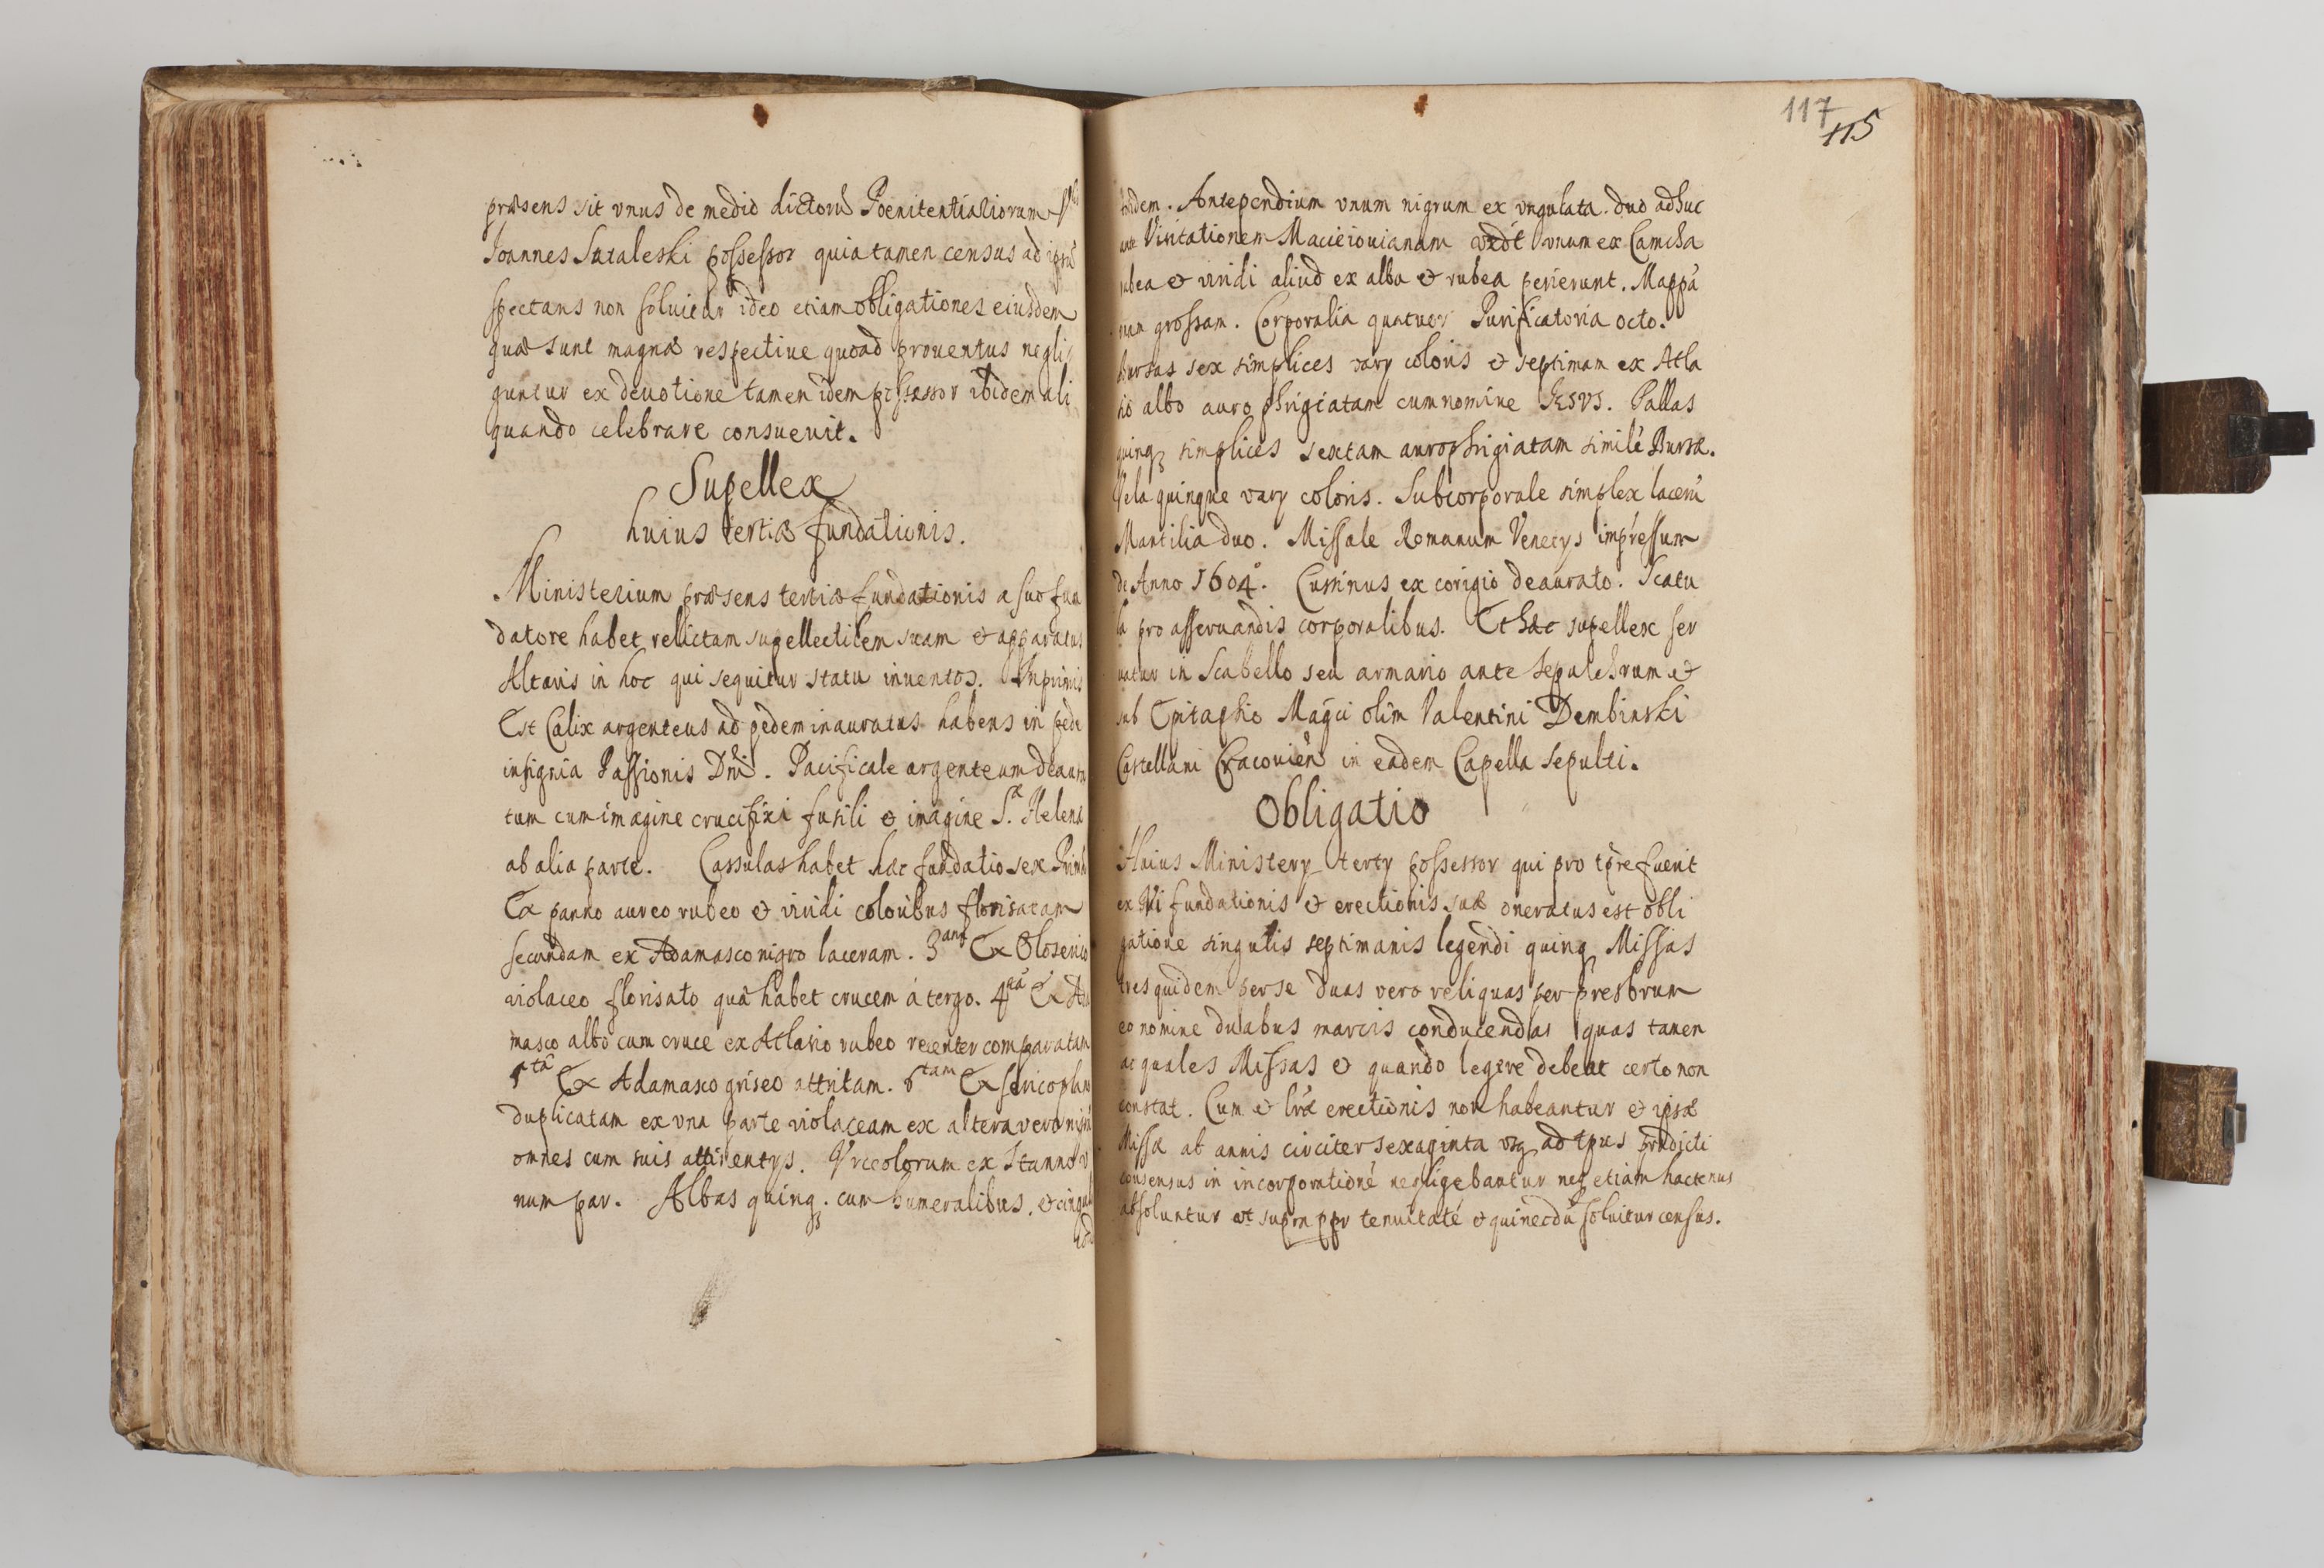 præsens sit vnus de medio dictorũ Poenitentialiorum
Joannes Sutaleski possessor quia tamen census ad ipsũ
spectans non soluitur ideo etiam obligationes eiusdem
quæ sunt magnæ respectiue quoad prouentus negli
guntur ex deuotione tamen idem possessor ibidem ali
quando celebrare consueuit.
Supellex
huius tertiæ fundationis.
Ministerium præsens tertiæ fundationis a suo fun
datore habet relictam supellectilem suam et apparatus
Altaris in hoc qui sequitur statu inuentos. Inprimis
Est Calix argenteus ad pedem inauratus habens in pede
insignia Passionis Dnĩ. Pacificale argenteum deaura
tum cum imagine crucifixi fusili et imagine S.æ Helenæ
ab alia parte. Cassulas habet hæc fundatio sex
Ex panno aureo rubeo et viridi coloribus florisatam
secundam ex Adamasco nigro laceram. 3am Ex Oloserico
violaceo florisato quã habet crucem á tergo. 4tã Ex Ada
masco albo cum cruce ex Atlasio rubeo recenter comparatam
5tã Ex Adamasco griseo attritam. 6tam Ex serico
duplicatam ex vna parte violaceam ex altera vero nigrã
omnes cum suis attinentys. Vrceolorum ex Stanno v
num par. Albas quinq. cum humeralibus. et cingul
117
115
tridem. Antependium vnum nigrum ex vngulata. duo adhuc
ante Visitationem Macieiouianam vnum ex Camcha
rubea et viridi aliud ex alba et rubea perierunt. Mappã
nan grossam. Corporalia quatuor Purificatoria octo.
Bursas sex simplices vary coloris et septimam ex Atla
sio albo auro phrigiatam cum nomine JESVS. Pallas
quinq simplices sextam aurophrigiatam similẽ Bursæ.
Vela quinque vary coloris. Subcorporale simplex lacerũ
Mantilia duo. Missale Romanum Venetys impressum
de Anno 1604º. Cussinus ex corigio deaurato. Scatu
la pro asseruandis corporalibus. Et hæc supellex ser
uatur in Scabello seu armario ante sepulchrum et
sub Epitaphio Magci olim Valentini Dembinski
Castellani Cracouieñ in eadem Capella sepulti.
Obligatio
Huius Ministery terty possessor qui pro tpre fuerit
ex Vi fundationis et erectionis suæ oneratus est obli
gatione singulis septimanis legendi quinq Missas
tres quidem per se duas vero reliquas per presbrum
eo nomine duabus marcis conducendas quas tamen
ac quales Missas et quando legere debeat certo non
constat. Cum et lræ erectionis non habeantur et ipsæ
Missæ ab annis circiter sexaginta vsq ad tpus prædicti
consensus in incorporationẽ negligebantur neq etiam hactenus
absoluuntur vt supra ppr tenuitatẽ et qui necdũ soluitur census.